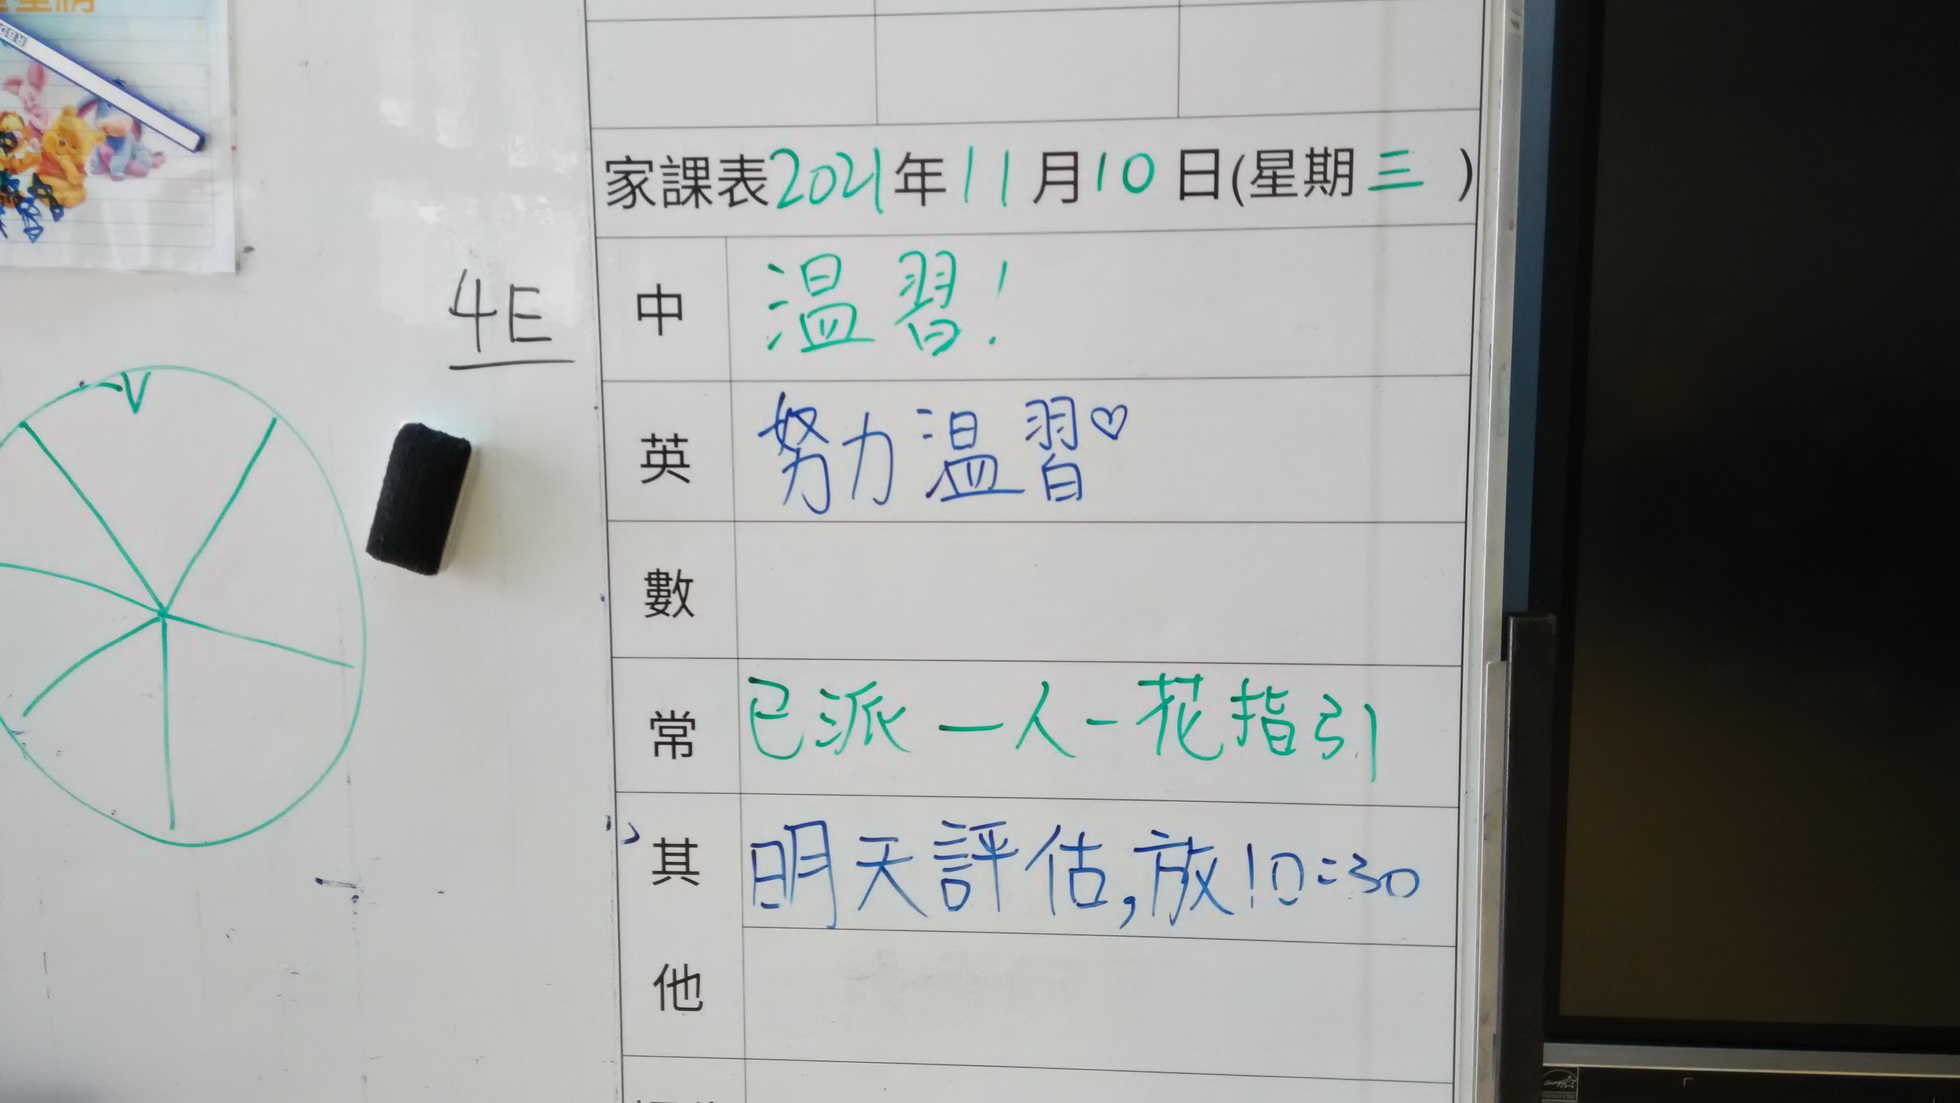 家課表2021年11月10日(星期三)
4E
中 温習!
英 努力温習♡
數
常 已派一人一花指引
其他 明天評估,放10:30